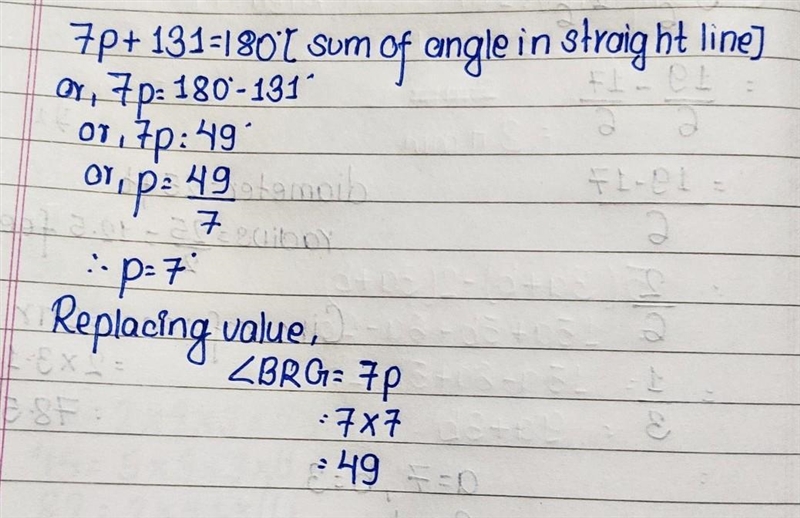 7p + 131 = 180° [sum of angle in straight line]
or, 7p = 180° - 131°
or, 7p = 49°
or, p = 49/7
∴ p = 7°
Replacing value,
∠BRG = 7p
= 7 × 7
= 49